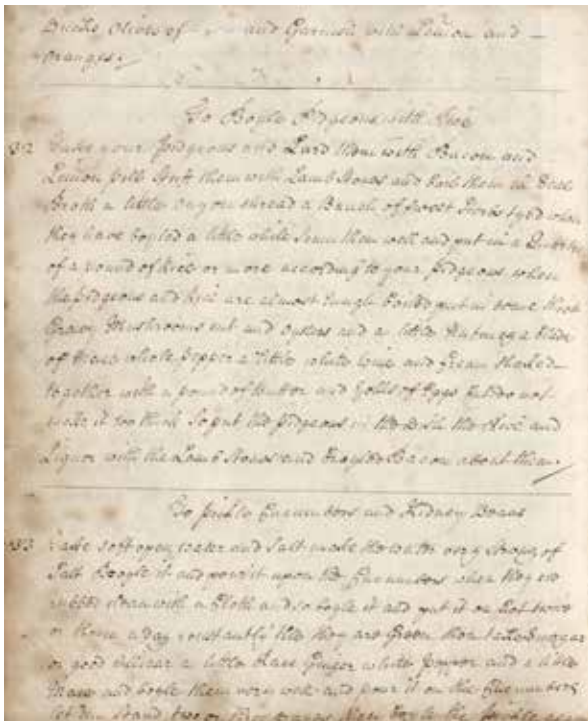 and Garnish with Lemon and
oranges
To Boyle Pidgeons with Rice
132 Take your Pidgeons and Lard them with Bacon and
Lemon pill stuff them with Lamb Stones and boil them in Veal
Broth a little onyon shread a Bunch of sweet herbs tyed when
they have boyled a little while scum them well and put in a Quarter
of a pound of Rice or more according to your Pidgeons when
the pidgeons and Rice are almost Enough boiled put in some thick
Gravy Mushrooms cut and oysters and a little Nutmeg a blade
of Mace whole pepper a little white wine and Cream
together with a pound of butter and Yolks of Eggs but do not
make it too thick so put the pidgeons in the dish the Rice and
Liquor with the Lamb Stones and broyled Bacon about them
To pickle Cucumbers and Kidney Beans
133 Take soft water and Salt make the water very strong of
Salt Boyle it and pour it upon the Cucumbers when they are
rubbed clean with a Cloth and so boyle it and put it on hot twice
or thrice a day constantly till they are Green then take
or good a little Ginger white pepper and a little
Mace and boyle them very well and pour it on the Cucumbers
let stand two or three